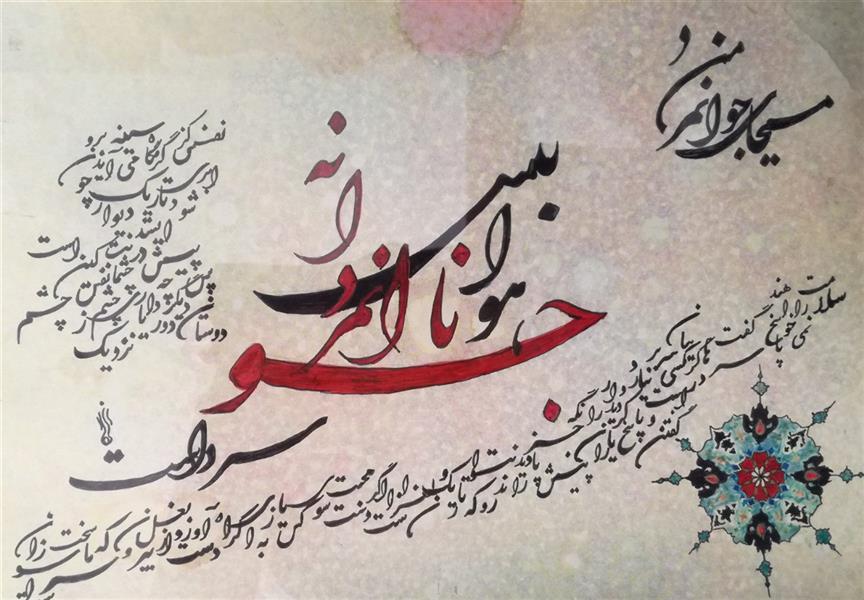 مسیحای جوانمرد من
هوا بس
ناجوانمردانه
سرد است
سلامت را نمی‌خواهند پاسخ گفت
سرها در گریبان است
کسی سر بر نیارد کرد
پاسخ گفتن و دیدار یاران را
نگه جز پیش پا را دید نتواند
که ره تاریک و لغزان است
وگر دست محبت سوی کس یازی
به اکراه آورد دست از بغل بیرون
که سرما سخت سوزان
نفس کز گرمگاه سینه
می‌آید برون
ابری شود تاریک
چو دیوار ایستد
در پیش چشمانت
نفس کاین است
پس دیگر چه داری چشم
ز چشم دوستان دور یا نزدیک